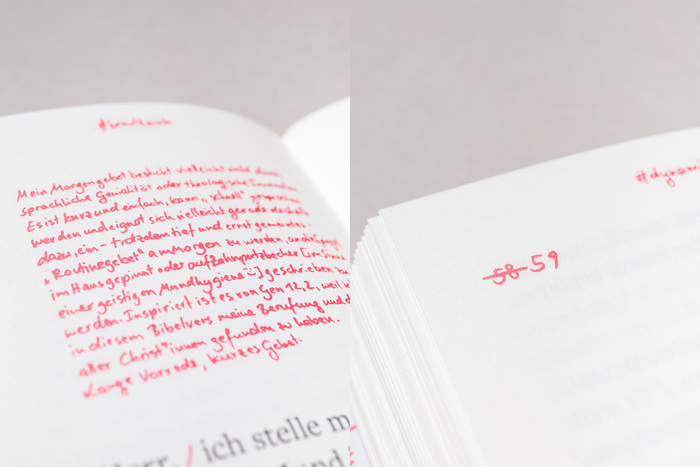 #benutzmich
Mein Morgengebet besticht vielleicht nicht durch
sprachliche Genialität oder theologische Innovation
Es ist kurz und einfach, kann „schnell" gesprochen
werden und eignet sich vielleicht gerade deshalb
dazu, ein - trotzdem tief und ernst gemeintes -
„Routinegebet" am Morgen zu werden, an
im Haus gepinnt oder auf Zahnputzbecher [im Sinne
einer geistigen Mundhygiene :-)] geschrieben zu
werden. Inspiriert ist es von Gen 12,2, weil
in diesem Bibelvers meine Berufung und d
aller Christ*innen gefunden zu haben.
Lange Vorrede, kurzes Gebet.
Herr, / ich stelle m
und
#dynami
58-59